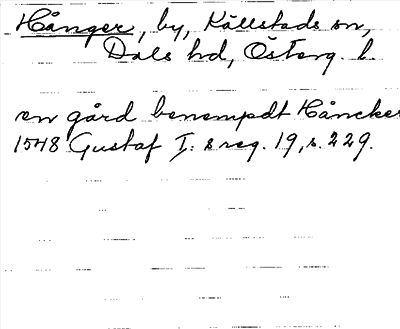 Hånger, by, Källstads sn,
Dals hd, Österg. l.
en gård benempdt Håncker
1548 Gustaf I: s reg. 19, s. 229.